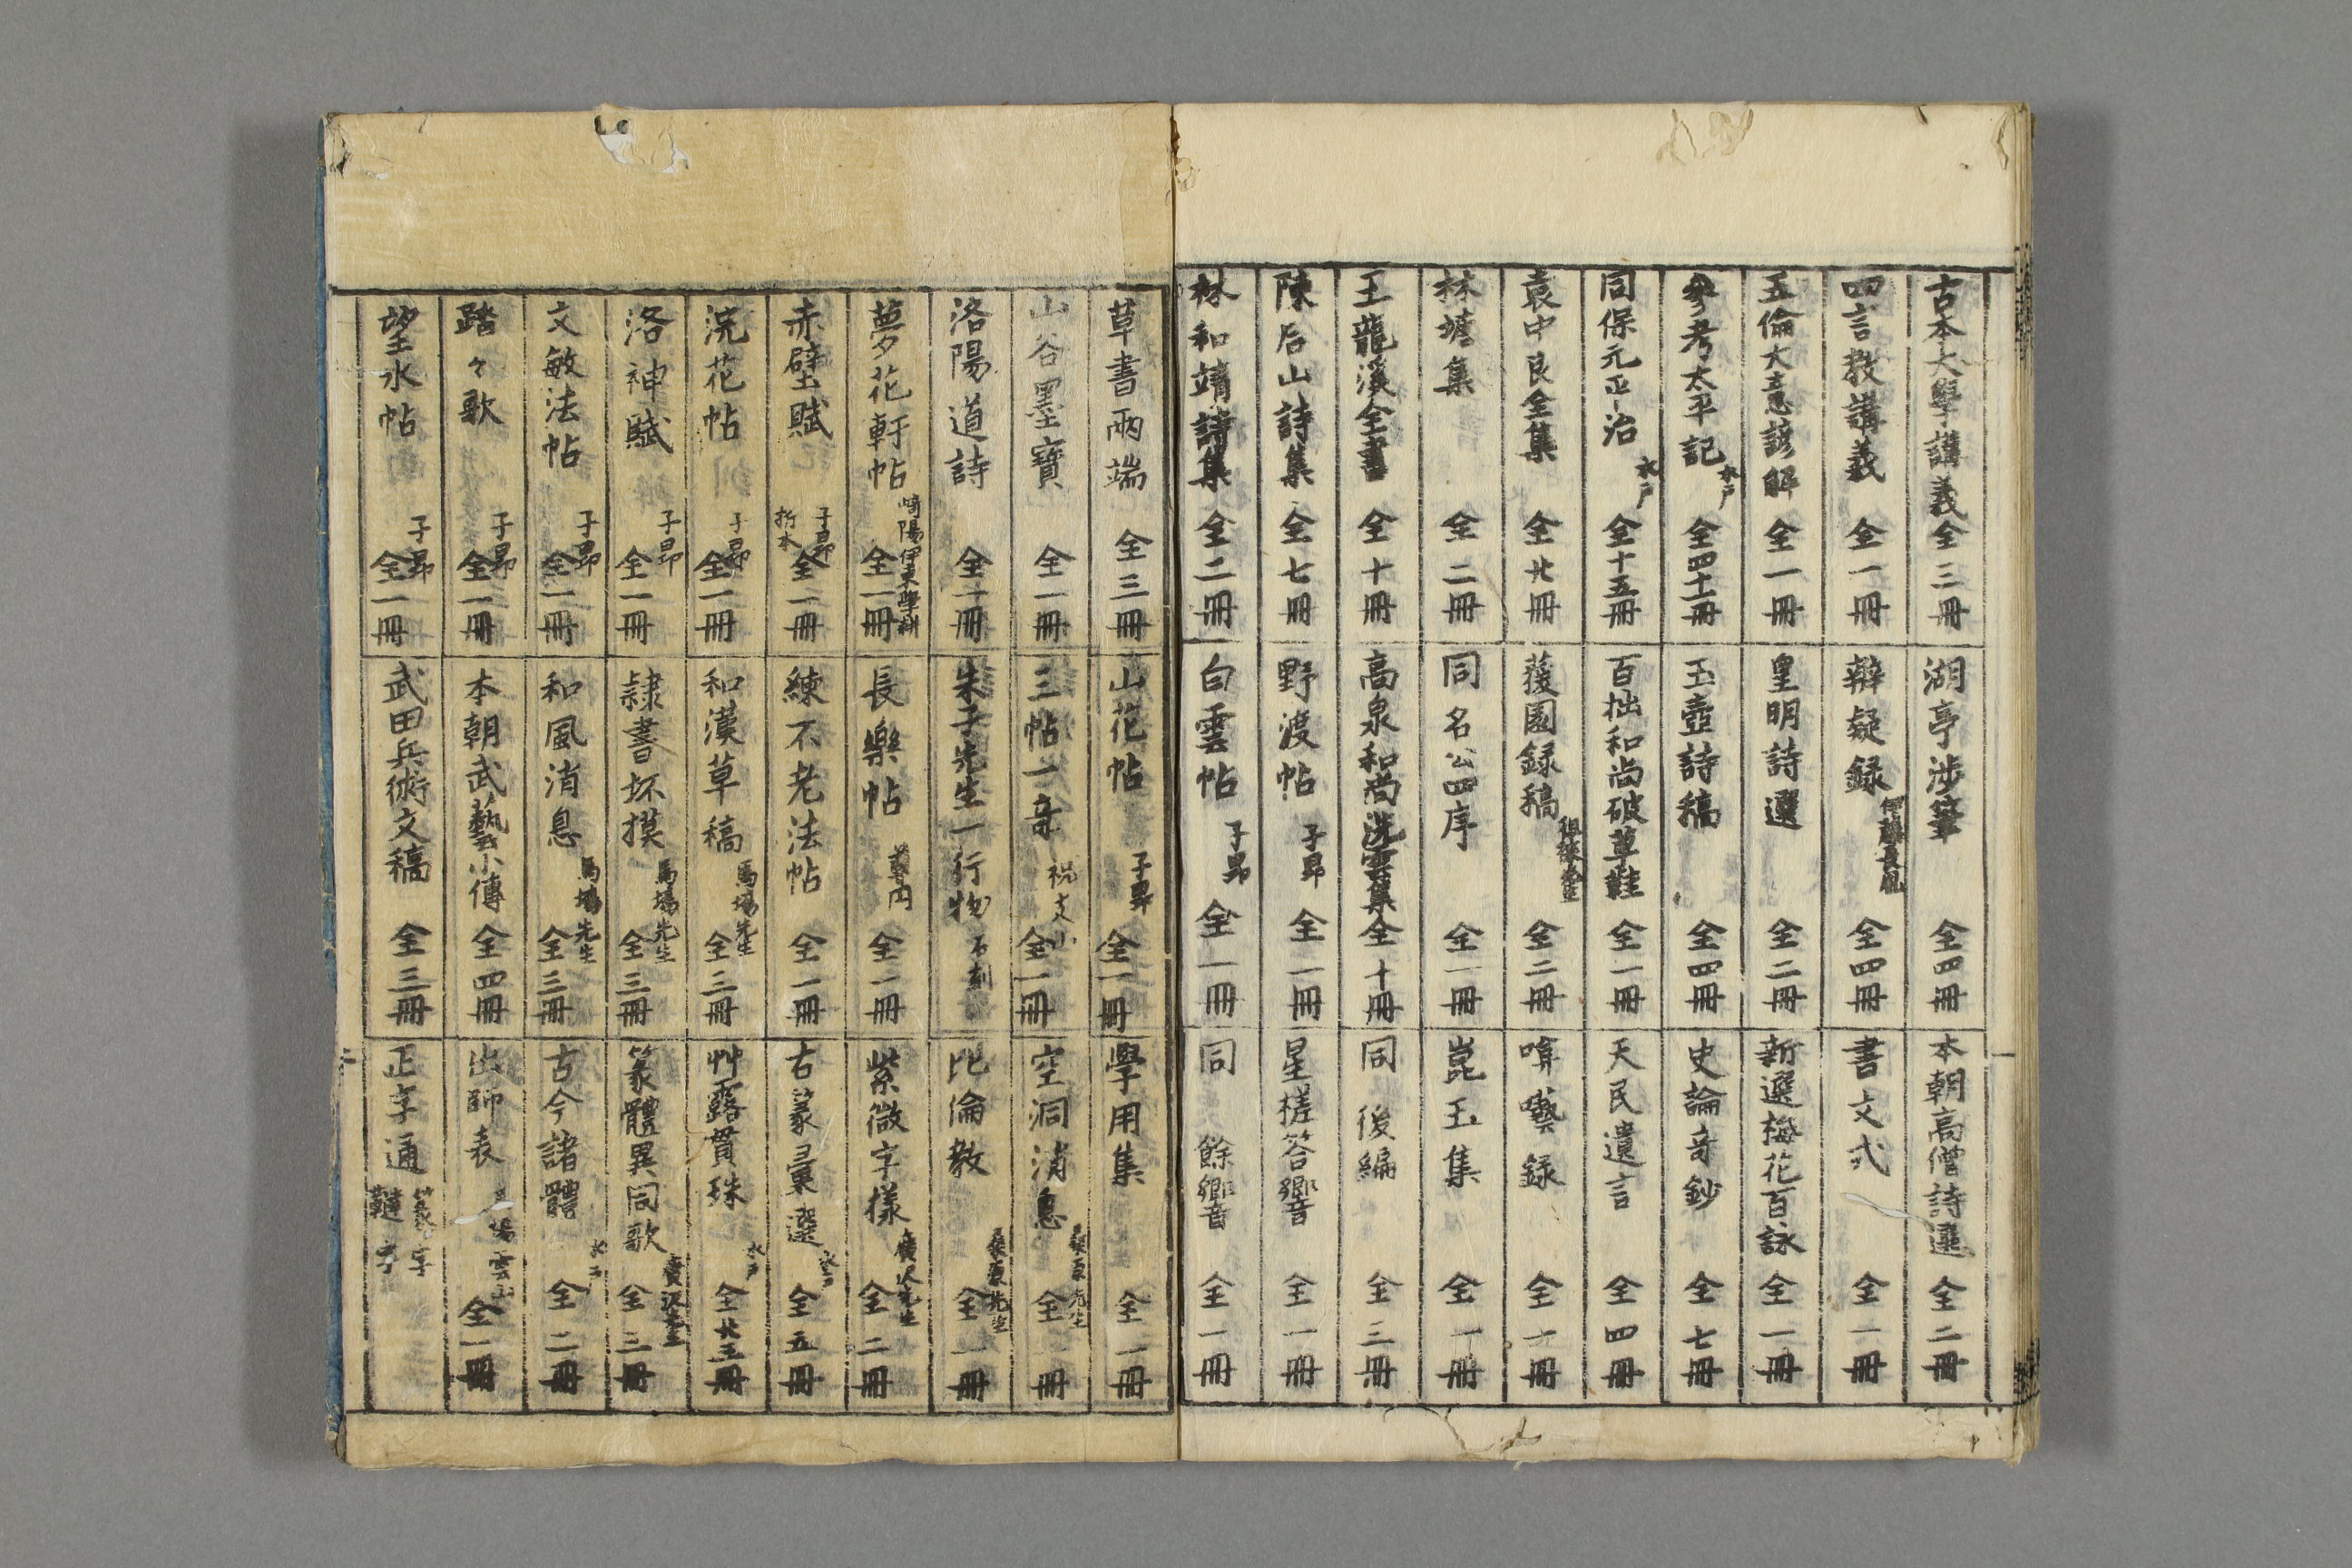 古本大學講義 全三冊
四言教講義 全一冊
五倫大意諺解 全一冊
參考太平記 水戸 全四十一冊
同保元平治 水戸 全十五冊
袁中良全集 全廿冊
林塘集 全二冊
王龍溪全書 全十冊
陳后山詩集 全七冊
林和靖詩集 全二冊
湖亭渉筆 全四冊
辨疑録 伊藤長胤 全四冊
皇明詩選 全二冊
玉壺詩稿 全四冊
百拙和尚破草鞋 全一冊
蘐園録稿 徂徠先生 全二冊
同名公四序 全一冊
高泉和尚洗雲集 全十冊
野渡帖 子昂 全一冊
白雲帖 子昂 全一冊
本朝高僧詩選 全二冊
書文式 全一冊
新選梅花百詠 全一冊
史論奇鈔 全七冊
天民遺言 全四冊
唷囈録 全一冊
崑玉集 全一冊
同 後編 全三冊
星槎答響 全一冊
同 餘響 全一冊
草書兩端 全三冊
山谷墨寶 全一冊
洛陽道詩 全一冊
夢花軒帖 﨑陽 全一冊
赤壁賦 子昂 折本 全一冊
浣花帖 子昂 全一冊
洛神賦 子昂 全一冊
文敏法帖 子昂 全一冊
踏々歌 子昂 全一冊
望水帖 子昂 全一冊
山花帖 子昂 全一冊
三帖一奇 祝支山 全一冊
朱子先生一行物 石刻
長樂帖 尊円 全一冊
練不老法帖 全一冊
和漢草稿 馬場先生 全三冊
隷書坯摸 馬場先生 全三冊
和風消息 馬場先生 全三冊
本朝武藝小傳 全四冊
武田兵術文稿 全三冊
學用集 全一冊
空洞消息 桑原先生 全一冊
比倫教 桑原先生 全一冊
紫微字様 廣沢先生 全二冊
古篆彙選 水戸 全五冊
艸露貫珠 水戸 全廿五冊
篆體異同歌 廣沢先生 全三冊
古今諸體 水戸 全二冊
出師表 全一冊
正字通 篆字 韃字